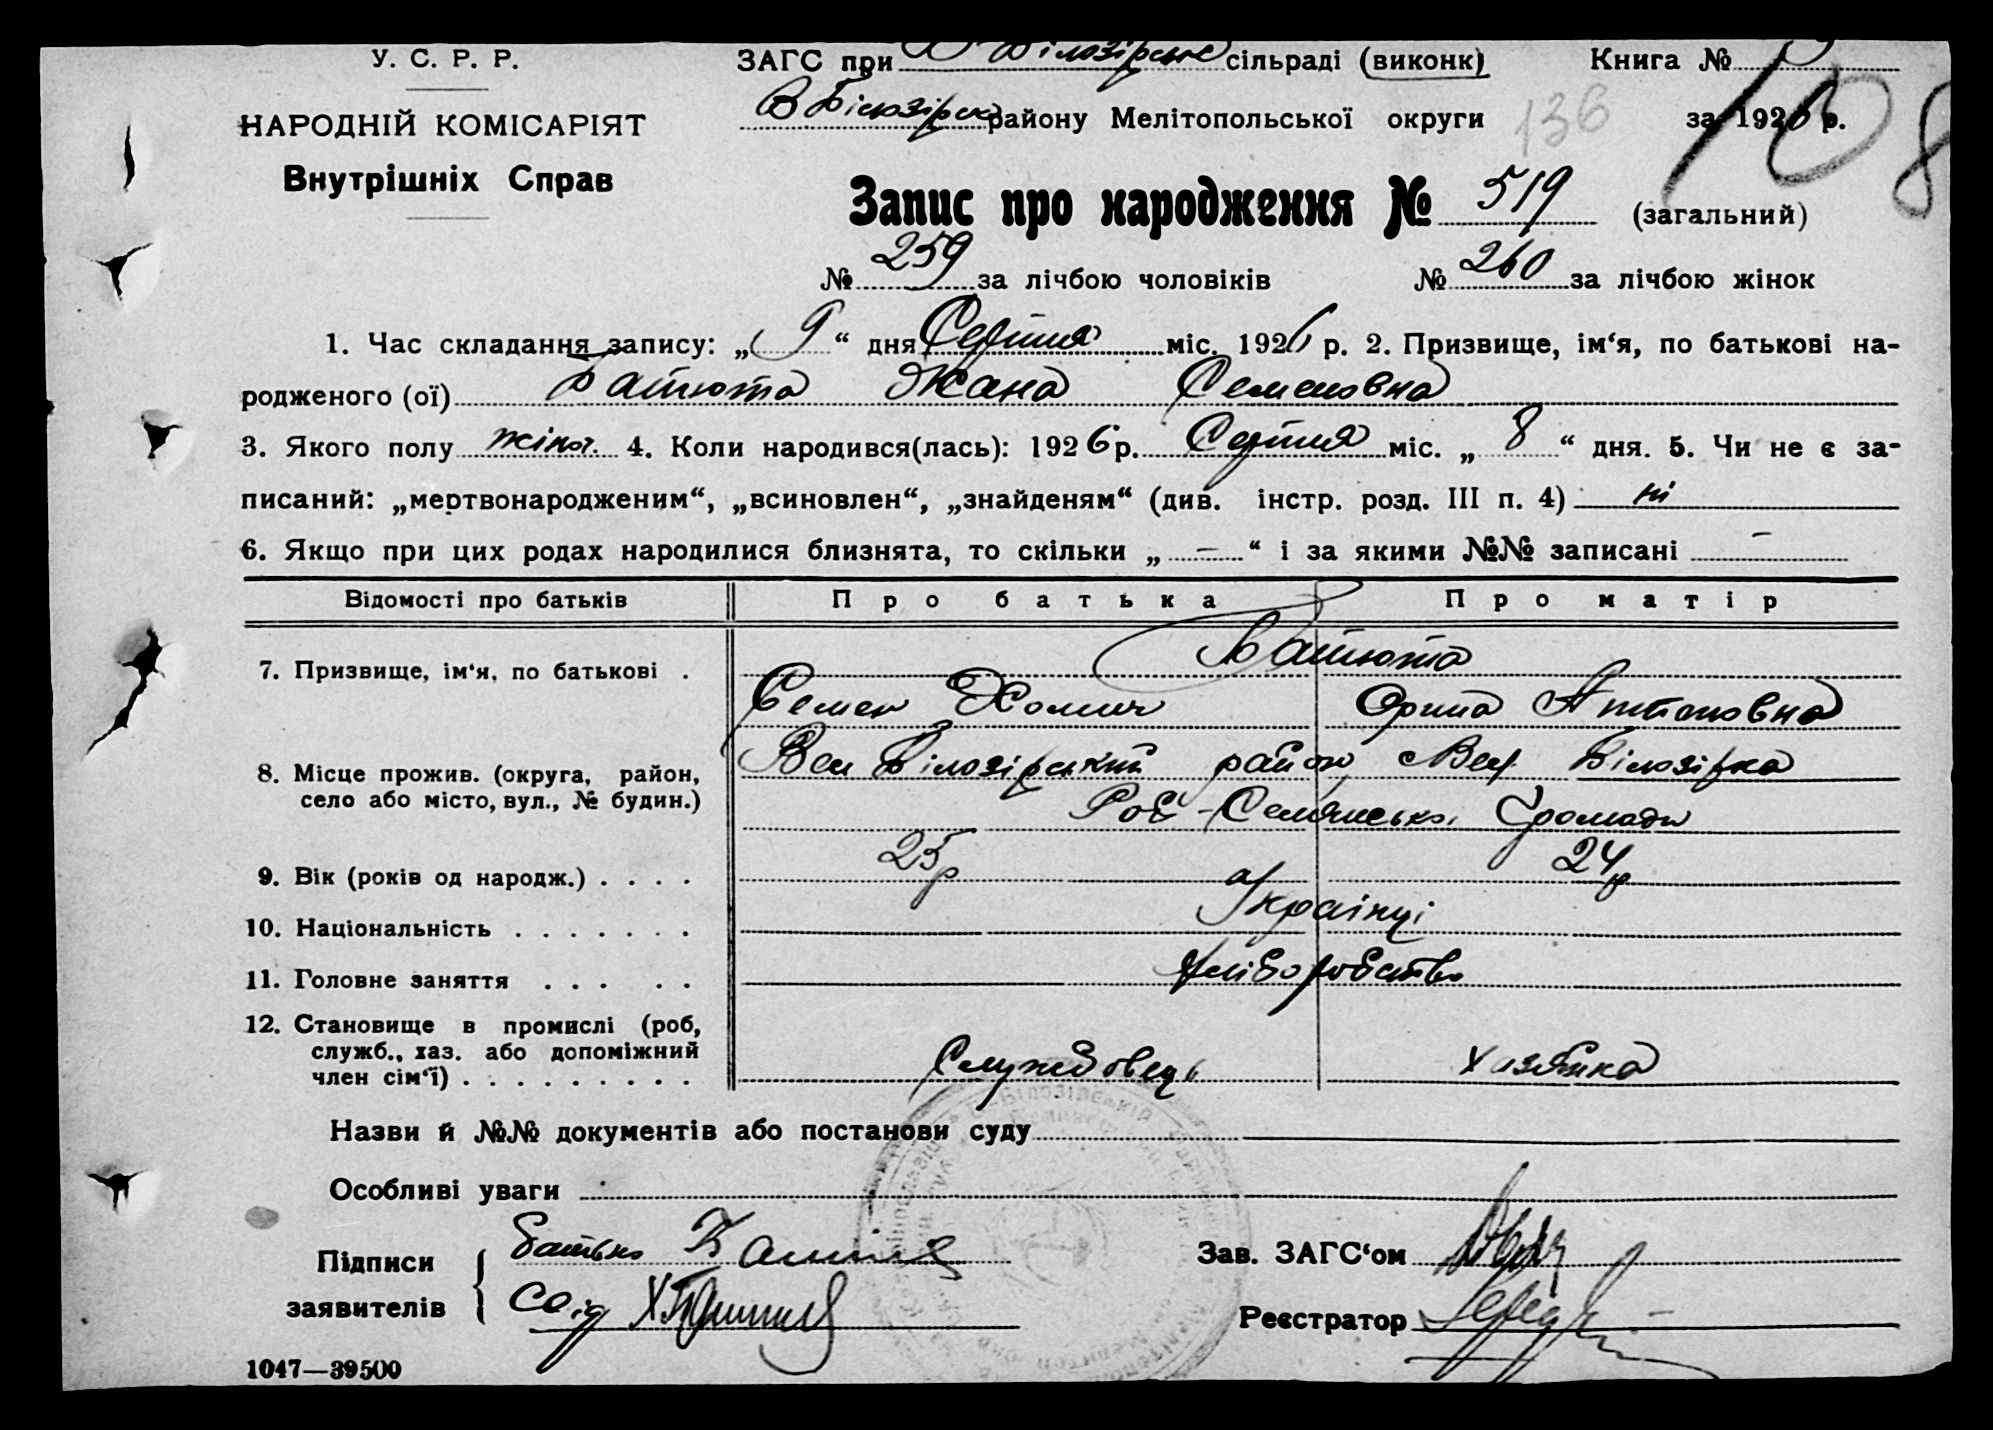 У. С. Р. Р.
НАРОДНІЙ КОМІСАРІЯТ
Внутрішніх Справ
ЗАГС при В Білозірське сільраді (виконк)
В Білозірск району Мелітопольської округи
Книга №
136
за 1926 р.
108
Запис про народження № 519 (загальний)
№ 259 за лічбою чоловіків № 260 за лічбою жінок
1. Час складання запису: „ 9 “ дня Серпня міс. 1926 р. 2. Призвище, ім‘я, по батькові на-
родженого (ої) Батюта Жана Семеновна
3. Якого полу жіноч. 4. Коли народився(лась): 1926 р. Серпня міс. „ 8 “ дня. 5. Чи не є за-
писаний: „мертвонародженим“, „всиновлен“, „знайденям“ (див. інстр. розд. III п. 4) ні
6. Якщо при цих родах народилися близнята, то скільки „ — “ і за якими №№ записані —
Відомості про батьків Про батька Про матір
7. Призвище, ім‘я, по батькові . Батюта
Семен Хомич Орина Антоновна
8. Місце прожив. (округа, район, село або місто, вул., № будин.) Вел Білозірський район Вел. Білозірка
Роб-Селянсько. Громади
9. Вік (років од народж.) . . . . 25р 24р
10. Національність . . . . . . . Українці
11. Головне заняття . . . . . Хліборобство
12. Становище в промислі (роб, служб., хаз. або допоміжний член сім‘ї) . . . . . . . . . Службовець Хазяйка
Назви й №№ документів або постанови суду
Особливі уваги
Підписи заявителів
батько
Свід
Зав. ЗАГС‘ом
Реєстратор
1047—39500